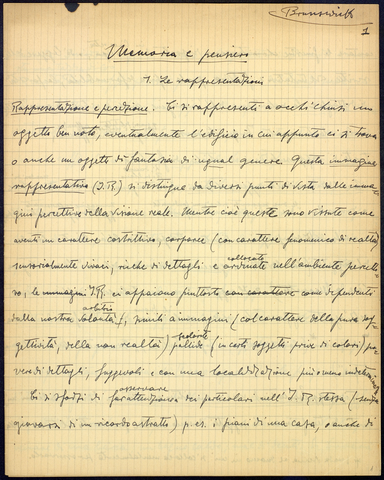 Brunswik
1
Memoria e pensiero
1. Le rappresentazioni
Rappresentazione e percezione: Ci si rappresenti a occhi chiusi un
oggetto ben noto, eventualmente l'edificio in cui appunto ci si trova
o anche un oggetto di fantasia di ugual genere. Questa immagine
rappresentativa (I.R.) si distingue da diversi punti di vista dalle imma-
gini percettive della visione reale. Mentre cioè queste sono vissute come
aventi un carattere costrittivo, corporee (con carattere fenomenico di realtà)
sensorialmente vivaci, ricche di dettagli e collocate ordinate nell'ambiente percetti-
vo, le immagini I.R. ci appaiono piuttosto con carattere come dipendenti
dalla nostra volontà arbitrio, simili a immagini (col carattere della pura sog-
gettività, della non realtà) scolorite pallide (in certi soggetti prive di colori) po-
vere di dettagli, fuggevoli e con una localizzazione più o meno indeterminata
Ci si sforzi di osservare dei particolari nell'I.R. stessa (senza
giovarsi di un ricordo astratto) p.es. i piani di una casa, o anche di